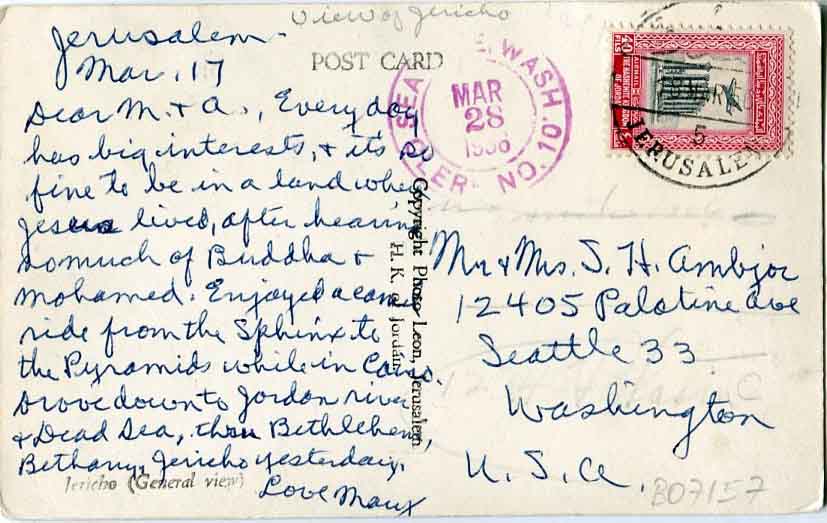 View of Jericho
POST CARD
Jerusalem
Mar. 17
Dear M. & A., Every day
has big interests, & it's so
fine to be in a land where
Jesus lived, after hearing
so much of Buddha &
Mohamed. Enjoyed a camel
ride from the Sphinx to
the Pyramids while in Cairo.
Drove down to Jordan river
& Dead Sea, thru Bethlehem,
Bethany, Jericho yesterday.
Love
Jericho (General view)
Copyright Photo Leon, Jerusalem
H. K. of Jordan
SEA WASH.
MAR
28
1956
CLERK NO. 10
40
FILS
AIRMAIL
THE HASHEMITE KINGDOM
OF JORDAN
JERUSALEM
5
Mr & Mrs. S. H. Ambjor
12405 Palatine Ave
Seattle 33
Washington
U. S. A.
B07157